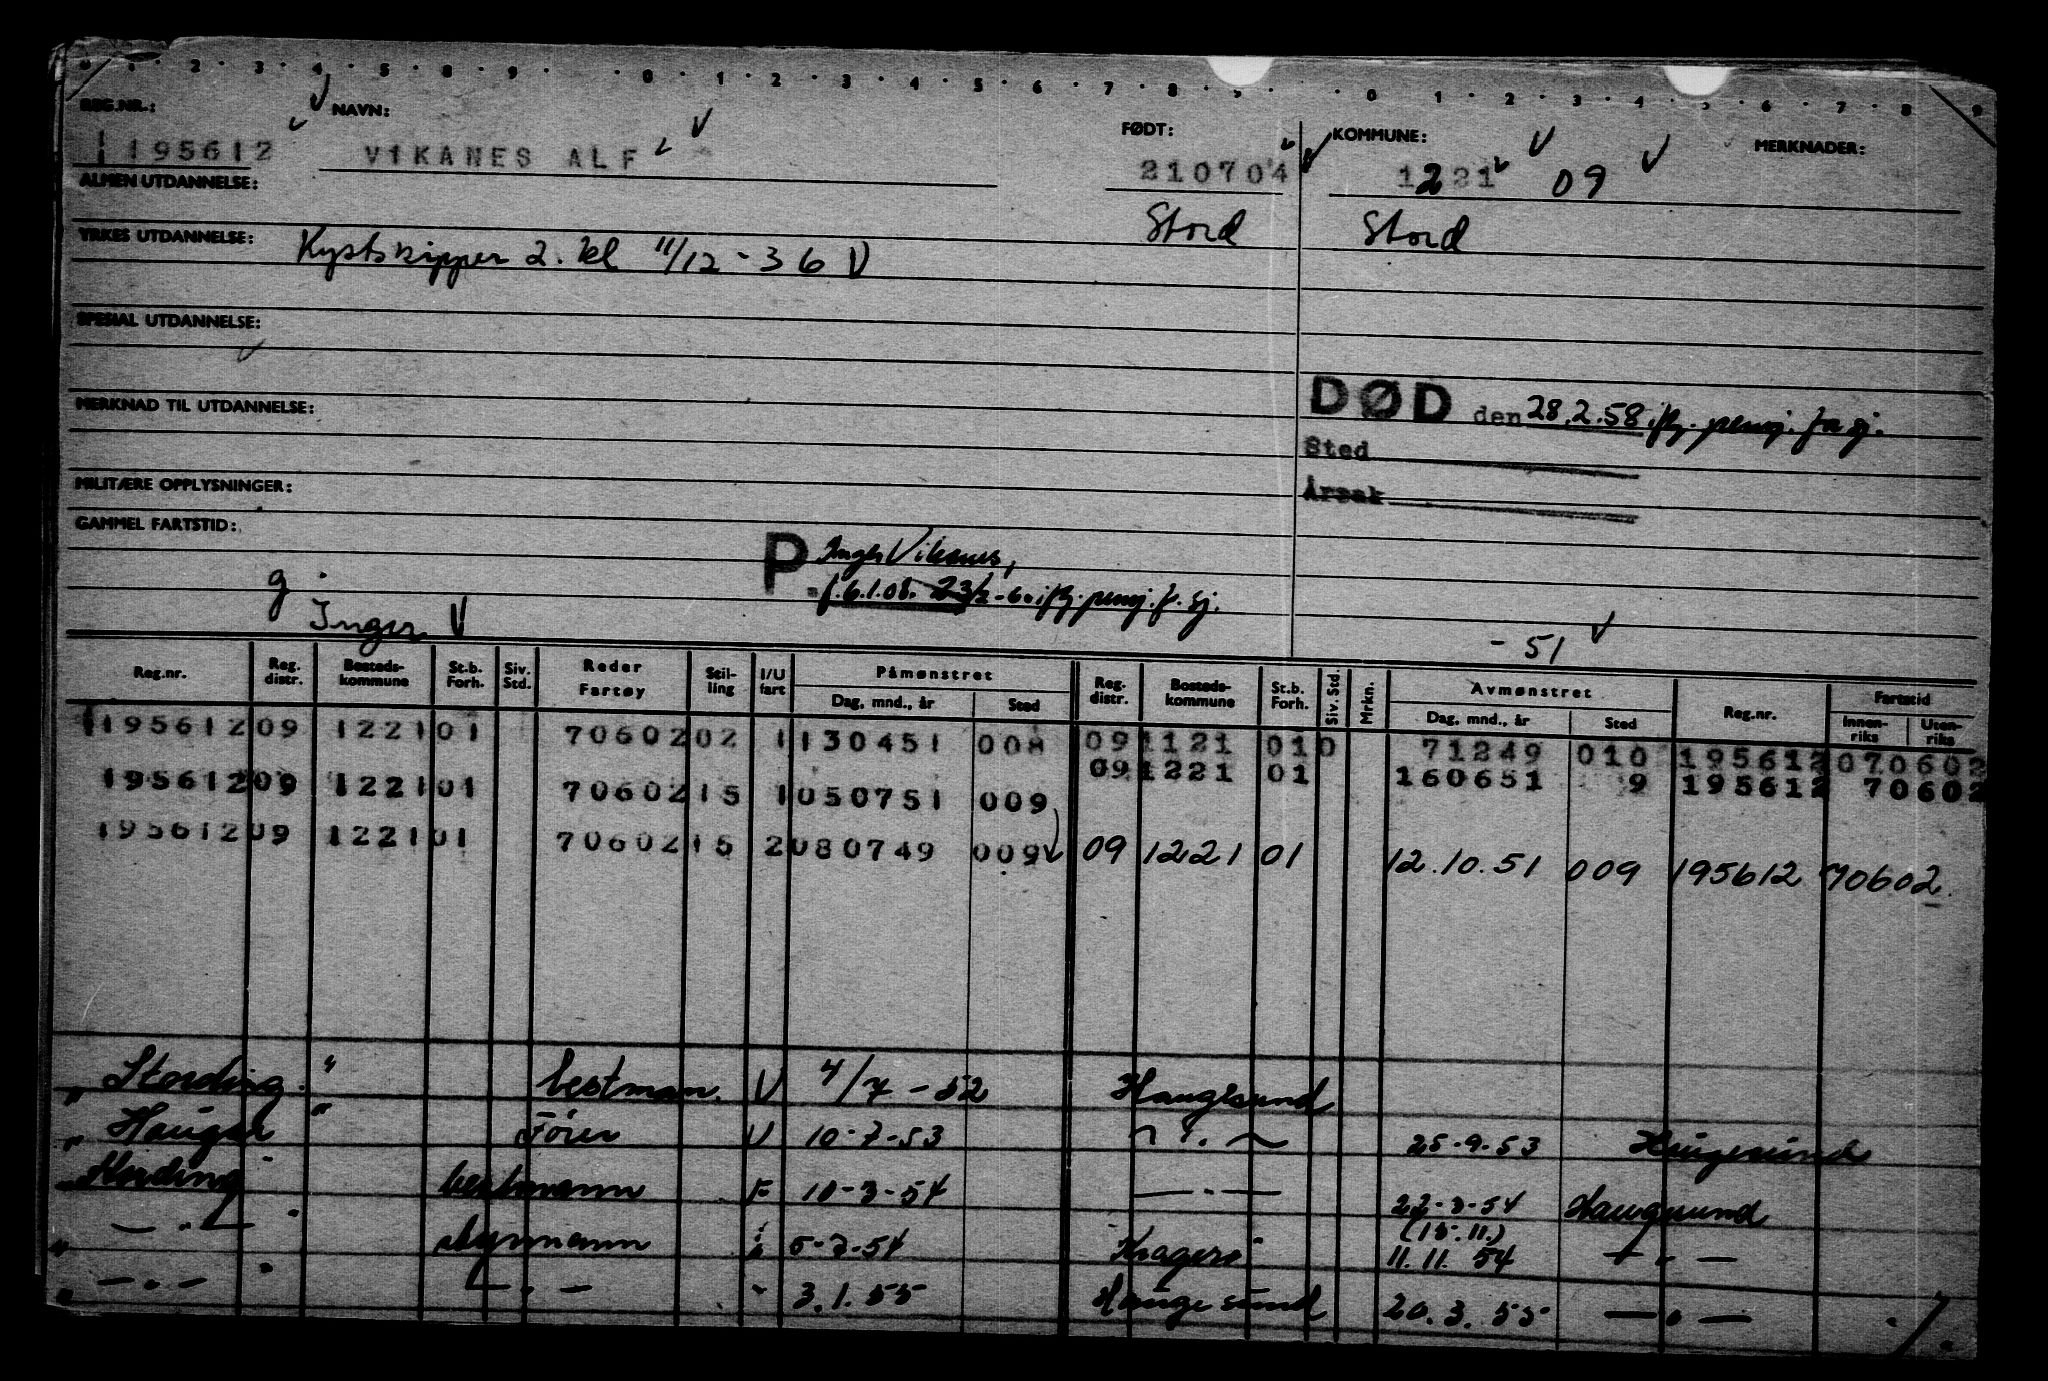 0 · 1 · 2 · 3 · 4 · 5 · 8 · 9 · · 0 · 1 · 2 · 3 · 4 · 5 · 6 · 7 · 8 · 9 · · 0 · 1 · 2 · 3 · 4 · 5 · 6 · 7 · 8 · 9
REG.NR.: NAVN: FØDT: KOMMUNE: MERKNADER:
195612 VIKANES ALF 210704 1221 09
ALMEN UTDANNELSE: Stord Stord
YRKES UTDANNELSE: Kystskipper 2. kl 11/12-36
SPESIAL UTDANNELSE:
MERKNAD TIL UTDANNELSE:
DØD den 28.2.58. iflg. pensj. for sj.
Sted
Årsak
MILITÆRE OPPLYSNINGER:
GAMMEL FARTSTID:
P Inger Vikanes,
f. 6.1.08. 23/2-60 iflg. pensj. f. sj.
g
Inger
- 51
Reg.nr. Reg. distr. Bosteds-kommune St.b. Forh. Siv. Std. Reder Fartøy Stil-ling I/U fart Påmønstret Dag, mnd., år Sted Reg. distr. Bosteds-kommune St.b. Forh. Siv. Std. Mrkn. Avmønstret Dag, mnd., år Sted Reg.nr. Fartstid Innen-riks Uten-riks
195612 09 1221 01 70602 02 1 130451 008 09 1121 01 0 71249 010 195612 070602
195612 09 1221 01 70602 15 1 050751 009 09 1221 01 160651 9 195612 70602
195612 09 1221 01 70602 15 2 080749 009 09 1221 01 12.10.51 009 195612 70602.
" Stording. " bestman. 4/7-52 Haugesund
" Haugar " Fører 10-7-53 25-9-53 Haugesund
" Stording " bestmann F 10-3-54 — " — 22-3-54 Haugesund
— " — " styrmann 5-7-54 Kragerø (15.11.) 11.11.54 — " —
— " — " — " — 3.1.55 Haugesund 20.3.55 — " —